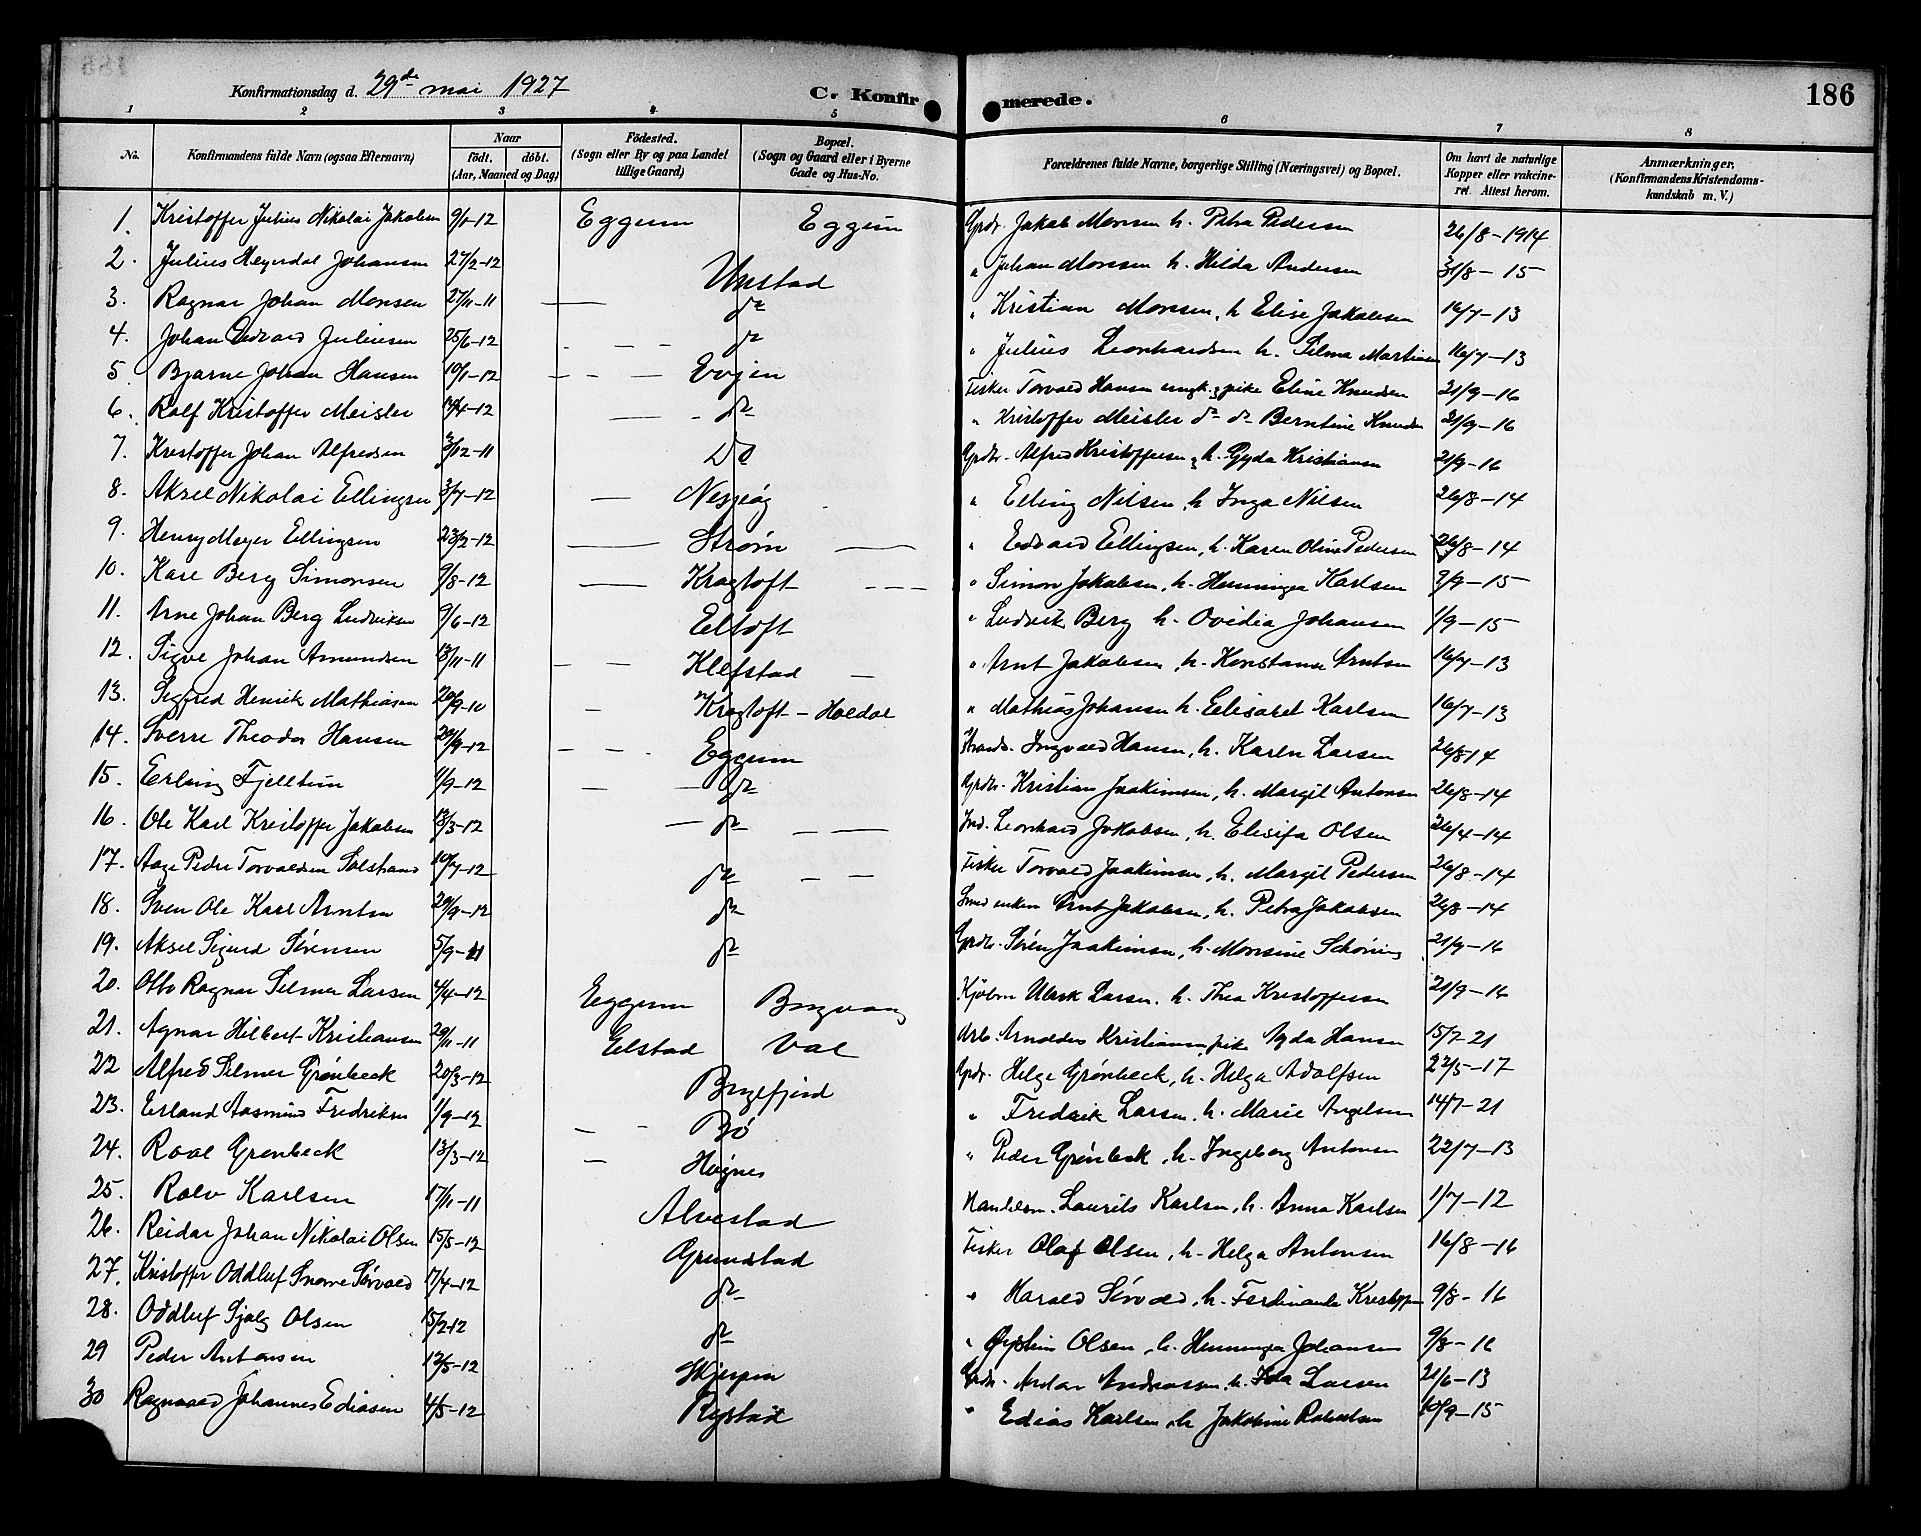 Konfirmationsdag d. 29de mai 1927 C. Konfirmerede. 186
1 2 3 4 5 6 7 8
No. Konfirmandens fulde Navn (ogsaa Efternavn) Naar födt. döbt. (Aar, Maaned og Dag) Födested. (Sogn eller By og paa Landet tillige Gaard) Bopæl. (Sogn og Gaard eller i Byerne Gade og Hus-No. Forældrenes fulde Navne, borgerlige Stilling (Næringsvei) og Bopæl. Om havt de naturlige Kopper eller vakcineret. Attest herom. Anmærkninger. (Konfirmandens Kristendomskundskab m. V.)
1. Kristoffer Julius Nikolai Jakobsen 9/1-12 Eggum Eggum Grdr. Jakob Monsen h. Petra Pedersen 26/8-1914
2. Julius Heyerdal Johansen 27/2-12 Unstad " Johan Monsen h. Hilda Andersen 31/8-15
3. Ragnar Johan Monsen 27/11-11 — do " Kristian Monsen, h. Elise Jakobsen 16/7-13
4. Johan Edvard Juliussen 25/6-12 - - - do " Julius Leonhardsen h. Selma Martinsen 16/7-13
5. Bjarne Johan Hansen 10/1-12 - - — Evjen Fisker Torvald Hansen ungk. g pike Eline Knudsen 21/9-16
6. Rolf Kristoffer Meisler 14/4-12 — - do " Kristoffer Meisler do do Berntine Knudsen 21/9-16
7. Kristoffer Johan Alfredsen 3/12-11 Do Grdbr. Alfred Kristoffersen, h. Gyda Kristiansen 21/9-16
8. Aksel Nikolai Ellingsen 3/7-12 — " Elling Nilsen, h. Inga Nilsen 26/8-14
9. Henry Meyer Ellingsen 23/2-12 — Strøm — " Edvard Ellingsen, h. Karen Oline Pedersen 26/8-14
10. Kare Berg Simonsen 9/8-12 — Kragtoft - - - " Simon Jakobsen, h. Henninga Karlsen 3/9-15
11. Arne Johan Berg Ludviksen 9/6-12 Eltoft " Ludvik Berg h. Ovidia Johansen 1/9-15
12. Sigve Johan Amundsen 13/11-11 - - Klefstad — " Arnt Jakobsen, h. Konstanse Arntsen 16/7-13
13. Sigfred Henrik Mathiasen 20/9-10 - Kragtoft - Holdal " Mathias Johansen h. Elisabet Karlsen 16/7-13
14. Sverre Theodor Hansen 20/9-12 - - - Eggum Strands. Ingvald Hansen, h. Karen Larsen 26/8-14
15. Erling Fjelltun 1/9-12 - — do Grdbr. Kristian Joakimsen, h. Margit Antonsen 26/8-14
16. Ole Karl Kristoffer Jakobsen 13/3-12 — do - — Ind. Leonhard Jakobsen, h. Elisifa Olsen 26/4-14
17. Aage Peder Torvaldsen Solstrand 10/7-12 do - - Fisker Torvald Joakimsen, h. Margit Pedersen 26/8-14
18. Sven Ole Karl Arntsen 29/9-12 do Smed enkem Arnt Jakobsen, h. Petra Jakobsen 26/8-14
19. Aksel Sigurd Sørensen 5/9-11 do Grdbr. Søren Joakimsen, h. Monsine Schøning 21/9-16
20. Otto Ragnar Selmer Larsen 4/4-12 Eggum Borgvaag Kjøbm Ulrik Larsen. h. Thea Kristoffersen 21/9-16
21. Agnar Hilbert Kristiansen 29/11-11 Eelstad Val Arb. Arnoldus Kristiansen, pike Agda Hansen 15/7-21
22 Alfred Selmer Grønbeck 20/3-12 Borgefjord Grdr. Helge Grønbeck, h. Helga Adolfsen 22/5-17
23. Erland Aasmund Fredriksen 1/9-12 - - Bø " Fredrik Larsen, h. Marie Angelsen 14/7-21
24. Roal Grønbeck 13/3-12 - Høynes " Peder Grønbeck, h. Ingeborg Antonsen 22/7-13
25. Rolv Karlsen 17/11-11 Alvestad Handelsm. Laurits Karlsen, h. Anna Karlsen 1/7-12
26. Reidar Johan Nikolai Olsen 15/5-12 Grundstad Fisker Olaf Olsen, h. Helga Antonsen 16/8-16
27. Kristoffer Oddluf Snorre Sørvold 17/4-12 do " Harald Sørvold, h. Ferdinanda Kristoffersen 9/8-16
28. Oddluf Sjalg Olsen 15/2-12 do " Øystein Olsen, h. Henninga Johansen 9/8-16
29 Peder Antonsen 12/5-12 Skjerpen Grdbr. Andor Andreassen, h. Ida Larsen 21/6-13
30 Ragnvald Johannes Ediasen 4/5-12 Rystad " Edias Karlsen, h. Jakobine Robertsen 10/9-15